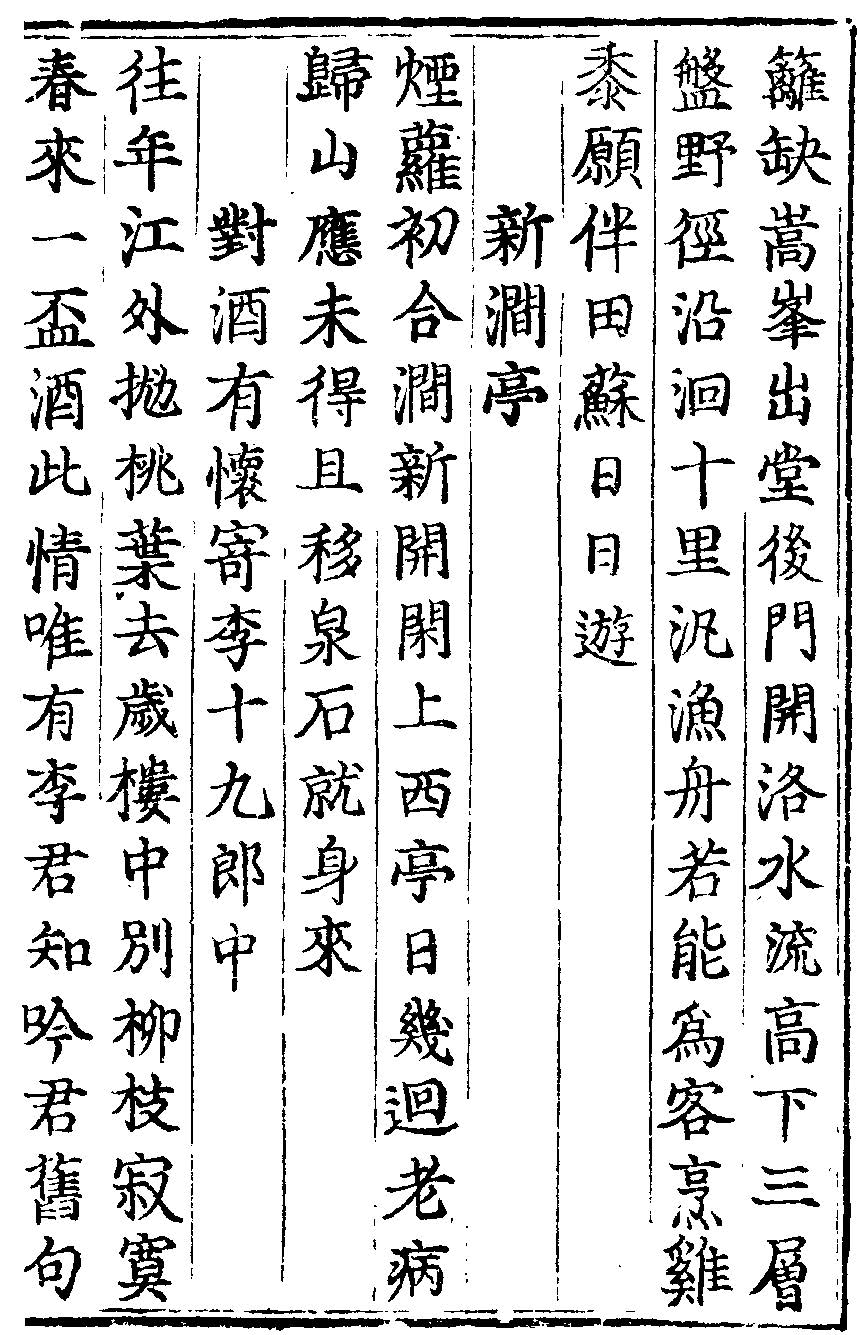 籬缺嵩峯出堂後門開洛水流高下三層
盤野徑沿洄十里汎漁舟若能爲客烹雞
黍願伴田蘇日日遊
新澗亭
煙蘿初合澗新開閑上西亭日幾迴老病
歸山應未得且移泉石就身來
對酒有懷寄李十九郎中
往年江外拋桃葉去歲樓中別柳枝寂寞
春來一盃酒此情唯有李君知吟君舊句